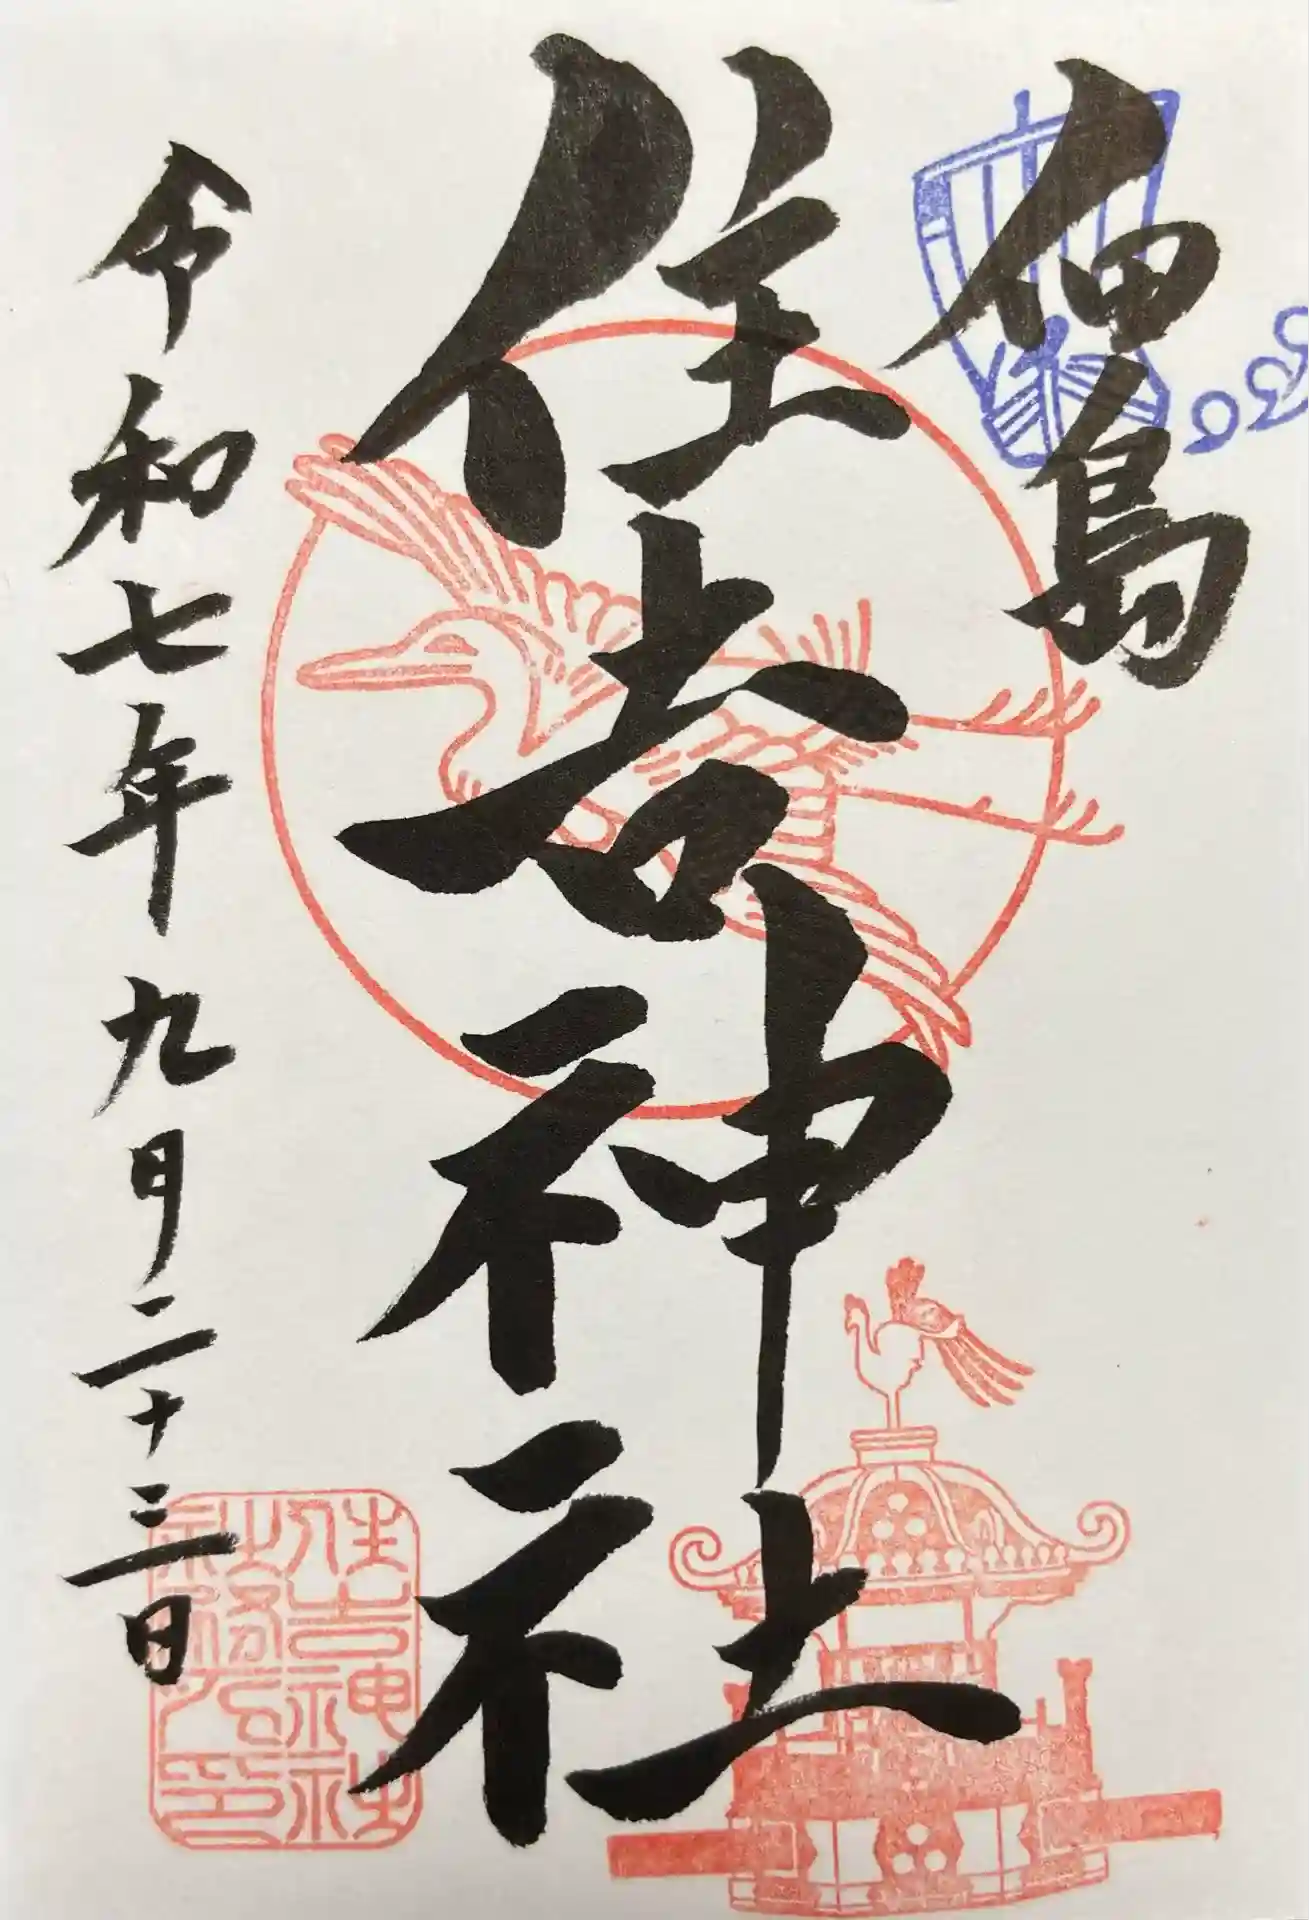 佃島
住吉神社
令和七年九月二十三日
住吉神社
社務所印